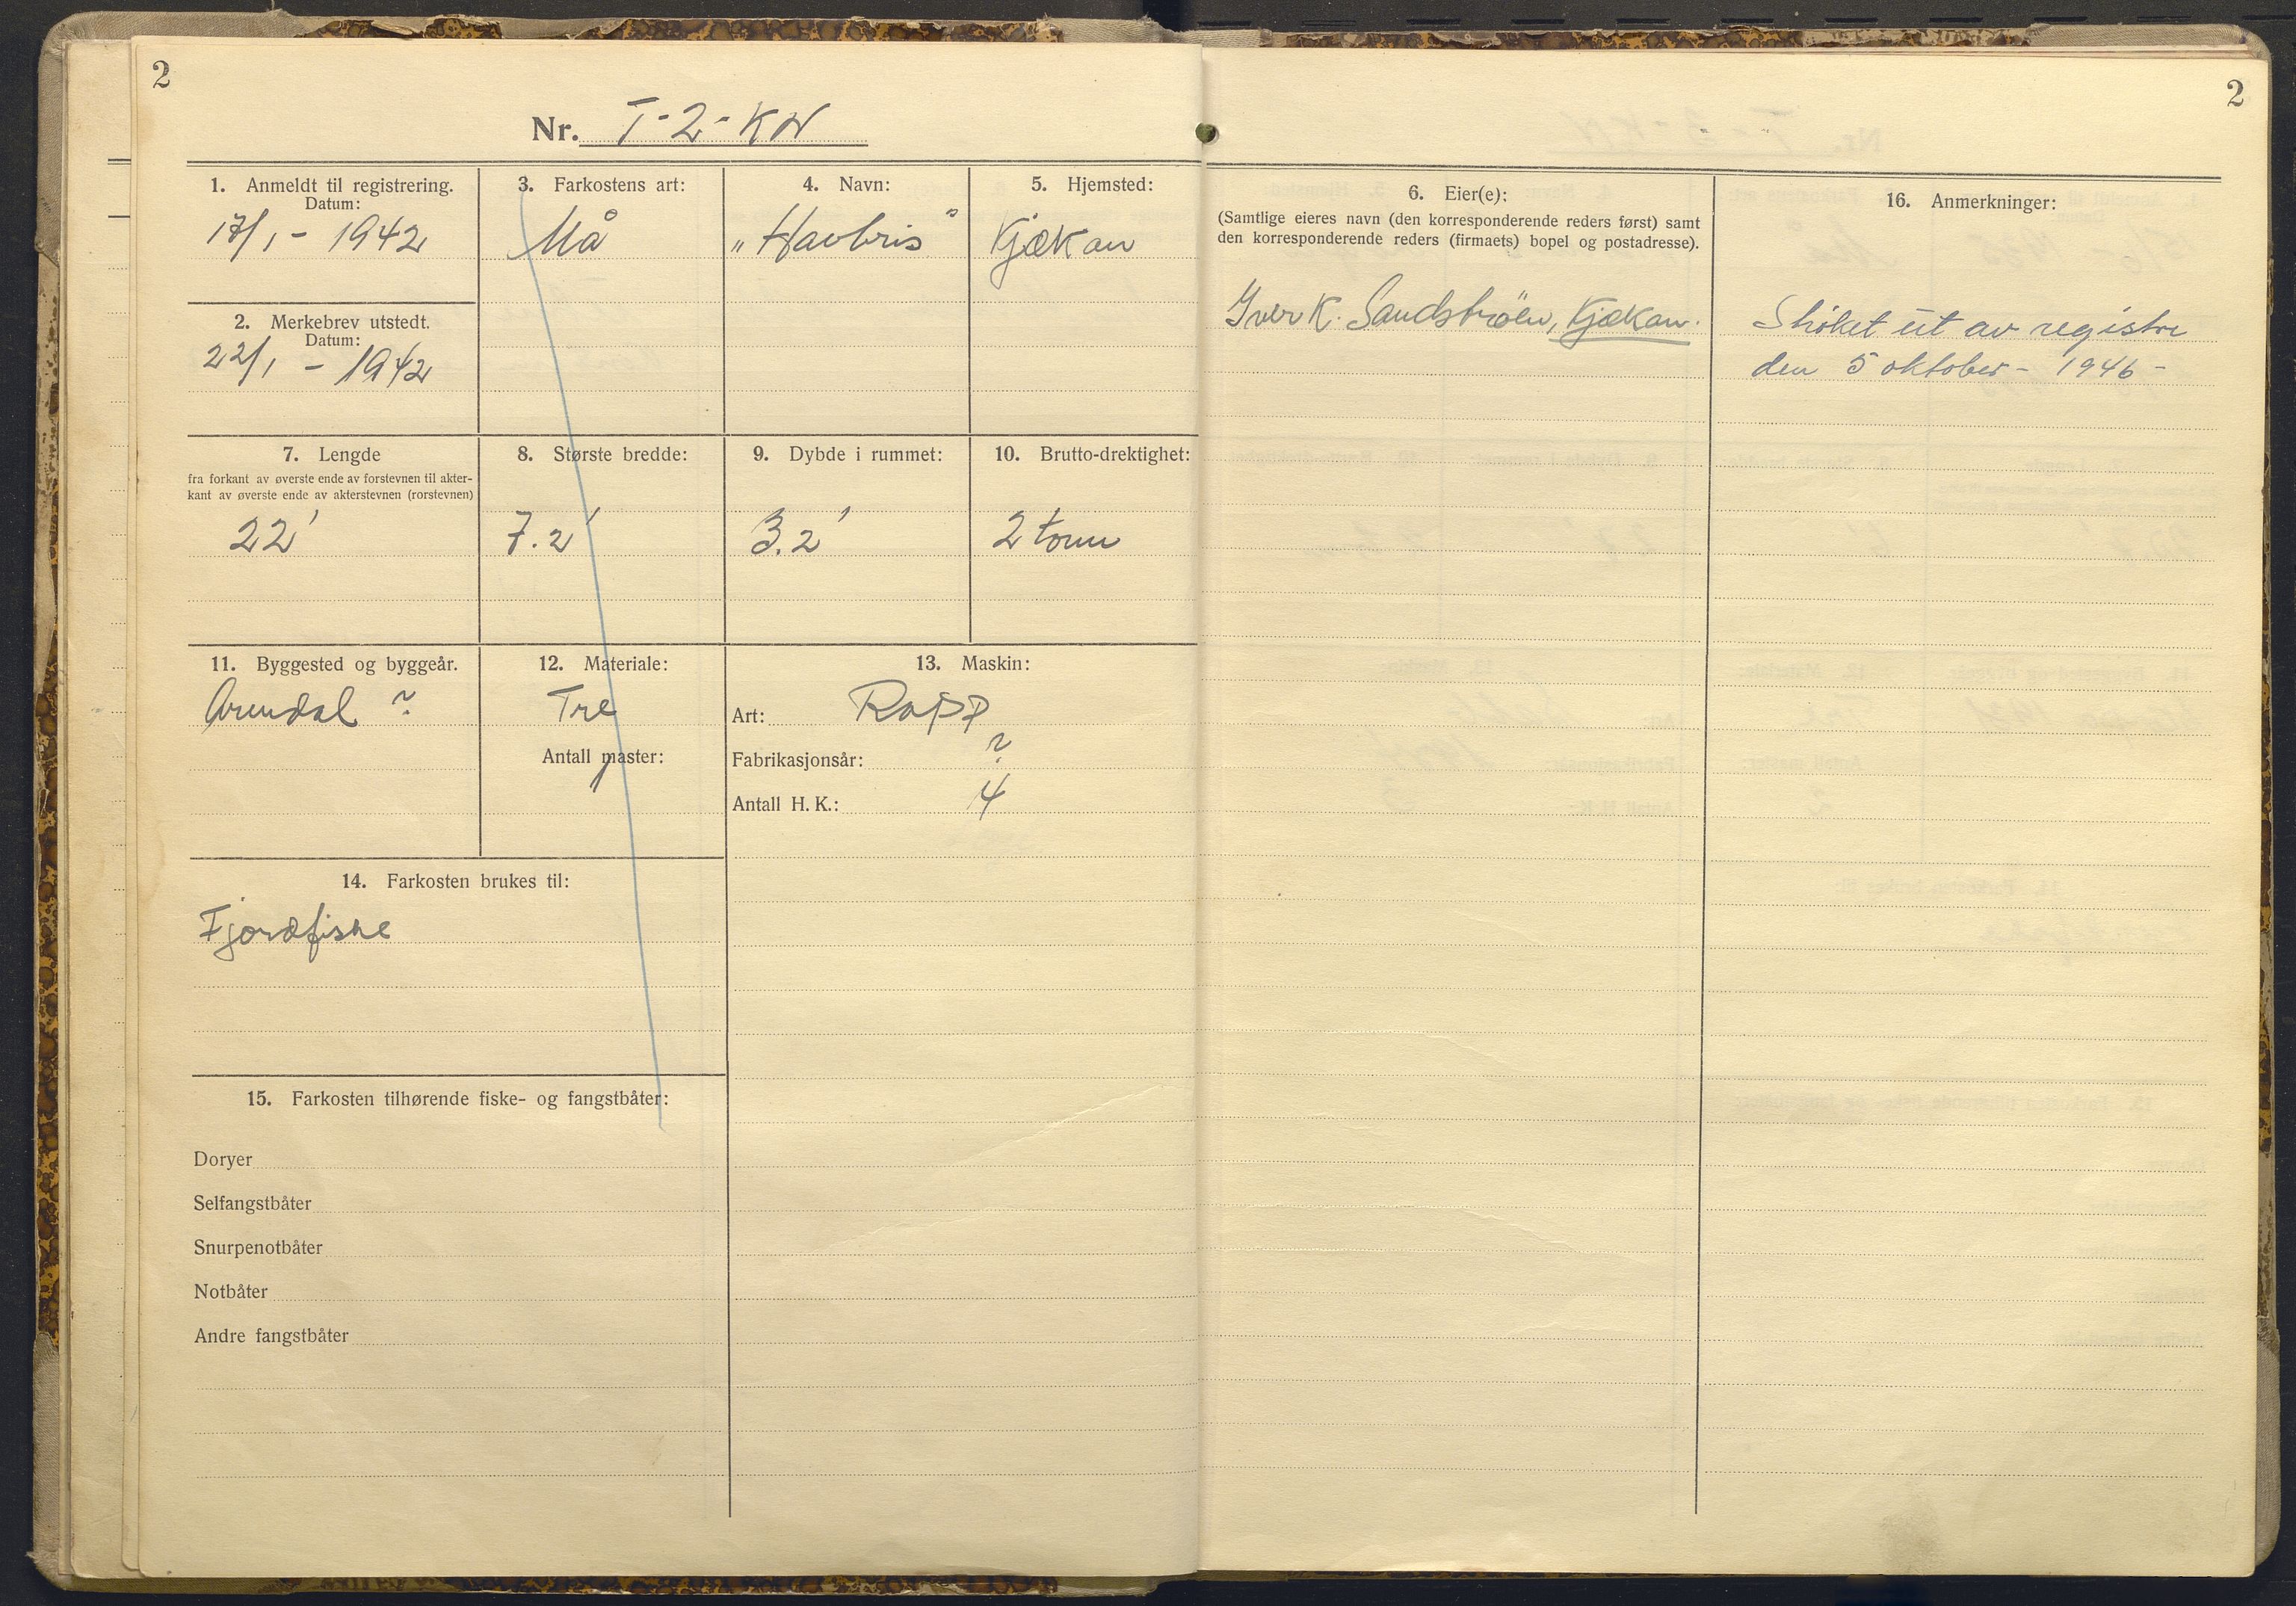 2
Nr. T-2-KN
1. Anmeldt til registrering.
Datum:
17/1 - 1942
2. Merkebrev utstedt.
Datum:
22/1 - 1942
3. Farkostens art:
Må
4. Navn:
"Havbris"
5. Hjemsted:
Kjækan
7. Lengde
fra forkant av øverste ende av forstevnen til akter-
kant av øverste ende av akterstevnen (rorstevnen)
22'
8. Største bredde:
7.2'
9. Dybde i rummet:
3.2'
10. Brutto-drektighet:
2 tonn
11. Byggested og byggeår.
Arendal ?
12. Materiale:
Tre
Antall master:
1
13. Maskin:
Art: Rapp
Fabrikasjonsår: ?
Antall H. K.: 4
14. Farkosten brukes til:
Fjordfiske
15. Farkosten tilhørende fiske- og fangstbåter:
Doryer
Selfangstbåter
Snurpenotbåter
Notbåter
Andre fangstbåter
2
6. Eier(e):
(Samtlige eieres navn (den korresponderende reders først) samt
den korresponderende reders (firmaets) bopel og postadresse).
Iver K. Kjækan.
16. Anmerkninger:
Strøket ut av registre
den 5 oktober - 1946 -